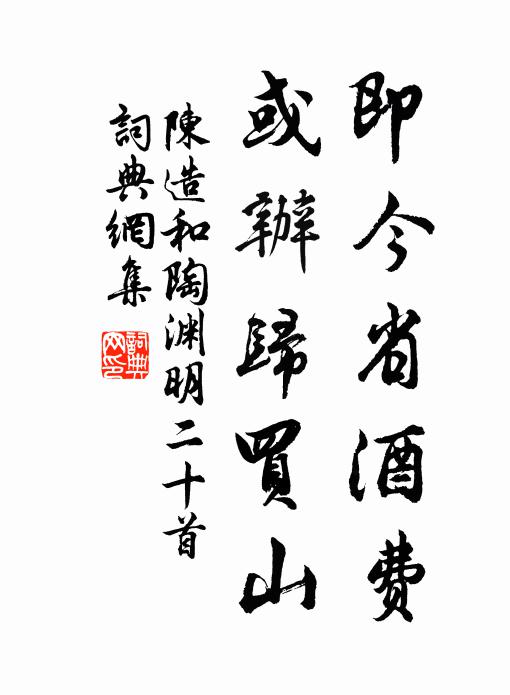 即今省酒费
或辦歸買山
陳造和陶渊明二十首
詞典網集
詞典網印